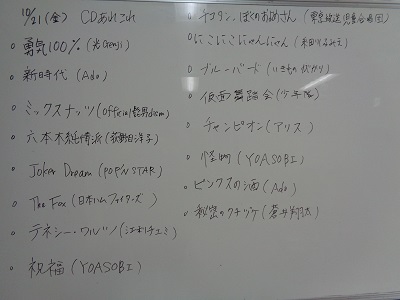 10/21(金) CDあれこれ
○ 勇気100% (光Genji)
○ 新時代 (Ado)
○ ミックスナッツ (Official髭男dism)
○ 六本木純情派 (荻野目洋子)
○ Joker Dream (POP'N STAR)
○ The Fox (日本ハムファイターズ)
○ テネシー・ワルツ (江利チエミ)
○ 祝福 (YOASOBI)
○ チコタン、ぼくのおよめさん (東京放送児童合唱団)
○ にこにこにゃんにゃん
○ ブルーバード (いきものがかり)
○ 仮面舞踏会 (少年隊)
○ チャンピオン (アリス)
○ 怪物 (YOASOBI)
○ ビンクスの酒 (Ado)
○ 秘密のクチヅケ (蒼井翔太)